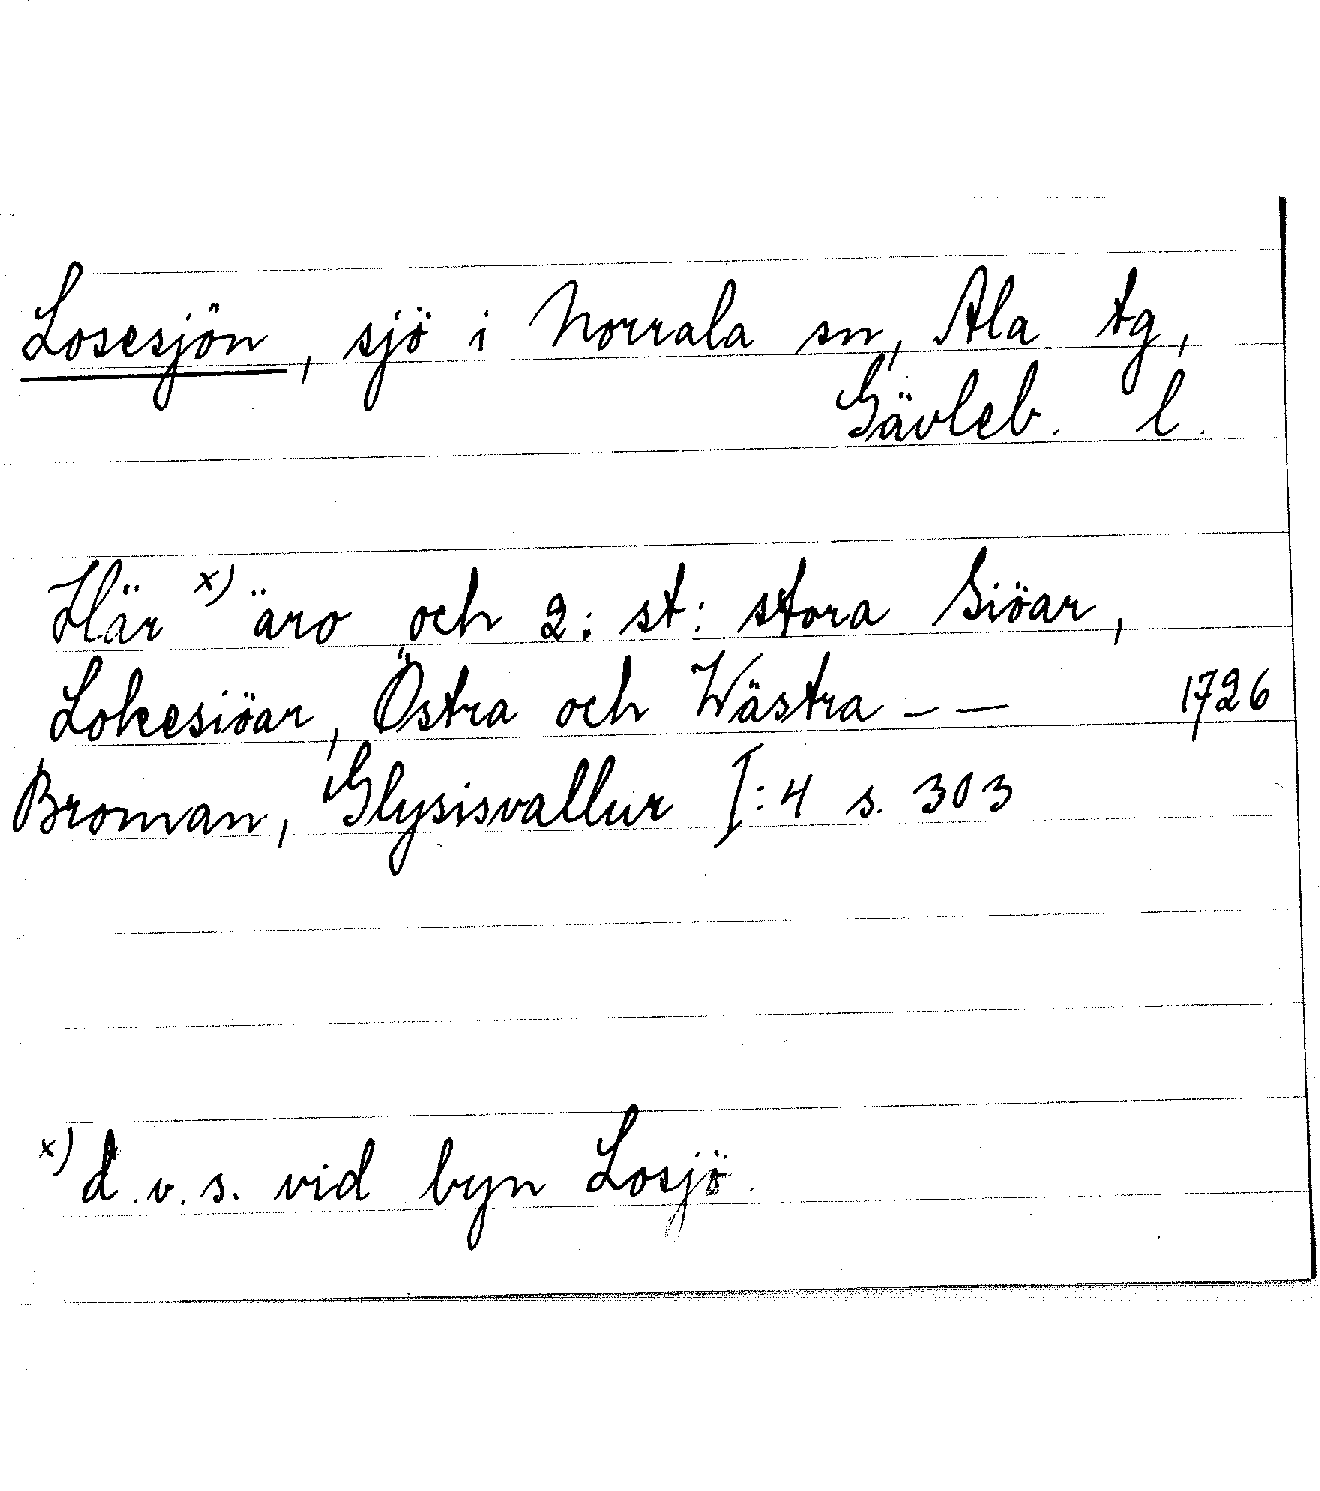 Losesjön, sjö i Norrala sn, Ala tg,
Gävleb. l.
Här x) äro och 2: st: stora Siöar,
Lokesiöar, Östra och Wästra – — 1726
Broman, Glysisvallur I:4 s. 303
x) d.v.s. vid byn Losjö.